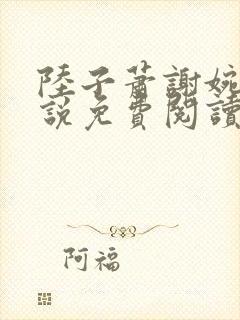 陸子蕭謝婉
說免費閱讀
阿福